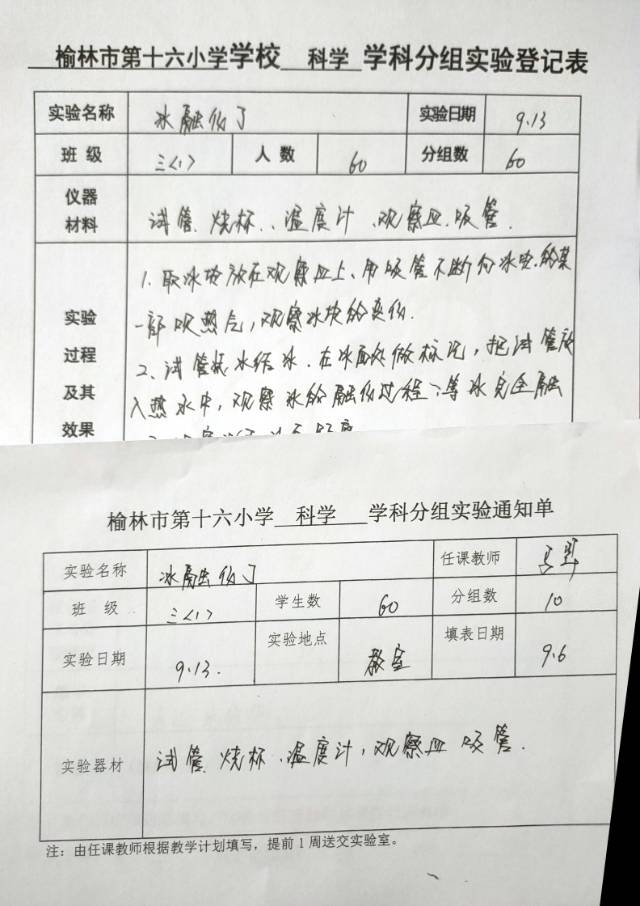 榆林市第十六小学学校 科学 学科分组实验登记表
实验名称 冰融化了 实验日期 9.13
班 级 三〈1〉 人 数 60 分组数 60
仪器
材料
试管、烧杯、温度计、观察皿、吸管.
实验
过程
及其
效果
1. 取冰块放在观察皿上、用吸管不断向冰块的某
一部吹热气，观察冰块的变化.
2、试管装水结冰、在冰面处做标记，把试管放
入热水中，观察冰的融化过程；等冰完全融
榆林市第十六小学 科学 学科分组实验通知单
实验名称 冰融化了 任课教师
班 级 三〈1〉 学生数 60 分组数 10
实验日期 9.13. 实验地点 教室 填表日期 9.6
实验器材 试管、烧杯、温度计，观察皿 吸管.
注：由任课教师根据教学计划填写，提前 1 周送交实验室。